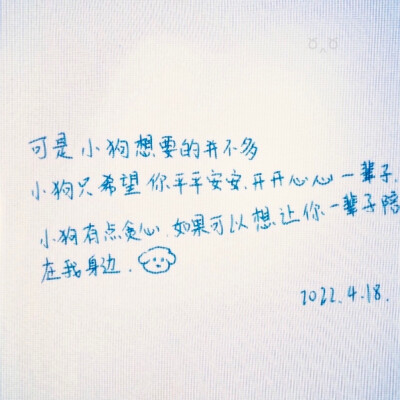 可是小狗想要的并不多
小狗只希望你平平安安.开开心心一辈子.
小狗有点贪心.如果可以想让你一辈子陪
在我身边.
2022.4.18.